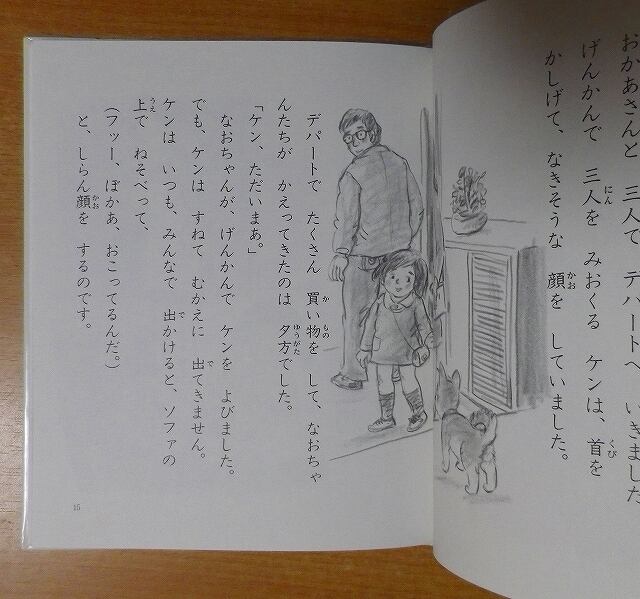 おかあさんと 三人で デパートへ いきました
げんかんで 三人を みおくる ケンは、首を
かしげて、なきそうな 顔を していました。
デパートで たくさん 買い物を して、なおちゃ
んたちが かえってきたのは 夕方でした。
「ケン、ただいまぁ。」
なおちゃんが、げんかんで ケンを よびました。
でも、ケンは すねて むかえに 出てきません。
ケンは いつも、みんなで 出かけると、ソファの
上で ねそべって、
(フッー、ぼかあ、おこってるんだ。)
と、しらん顔を するのです。
15